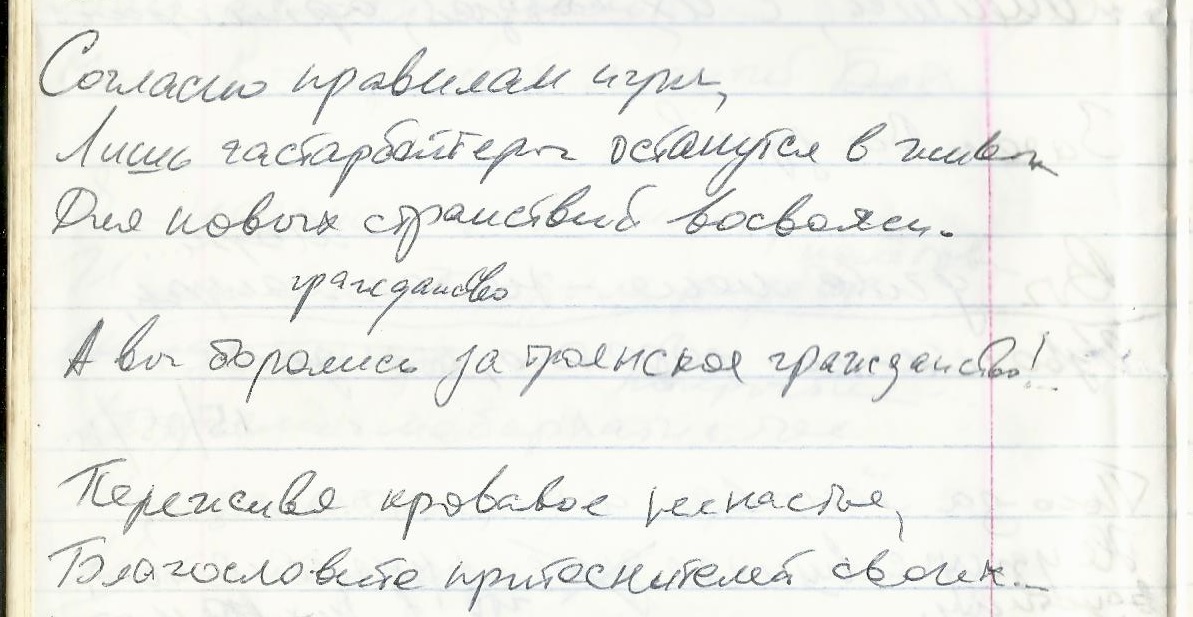 Согласно правилам игры,
Лишь гастарбайтеры останутся в живых
Для новых странствий восвояси.
гражданство
А вы боролись за троянское гражданство!..
Переживя кровавое ненастье,
Благословите притеснителей своих...